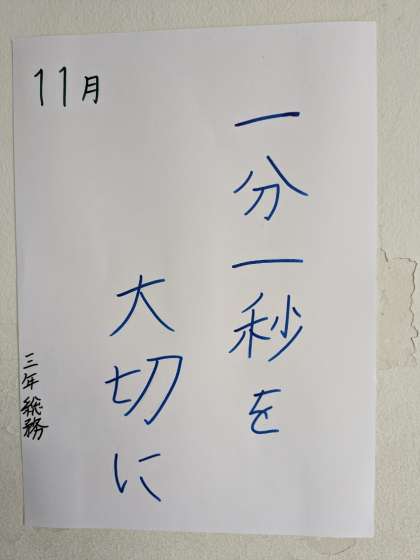 11月
一分一秒を
大切に
三年総務